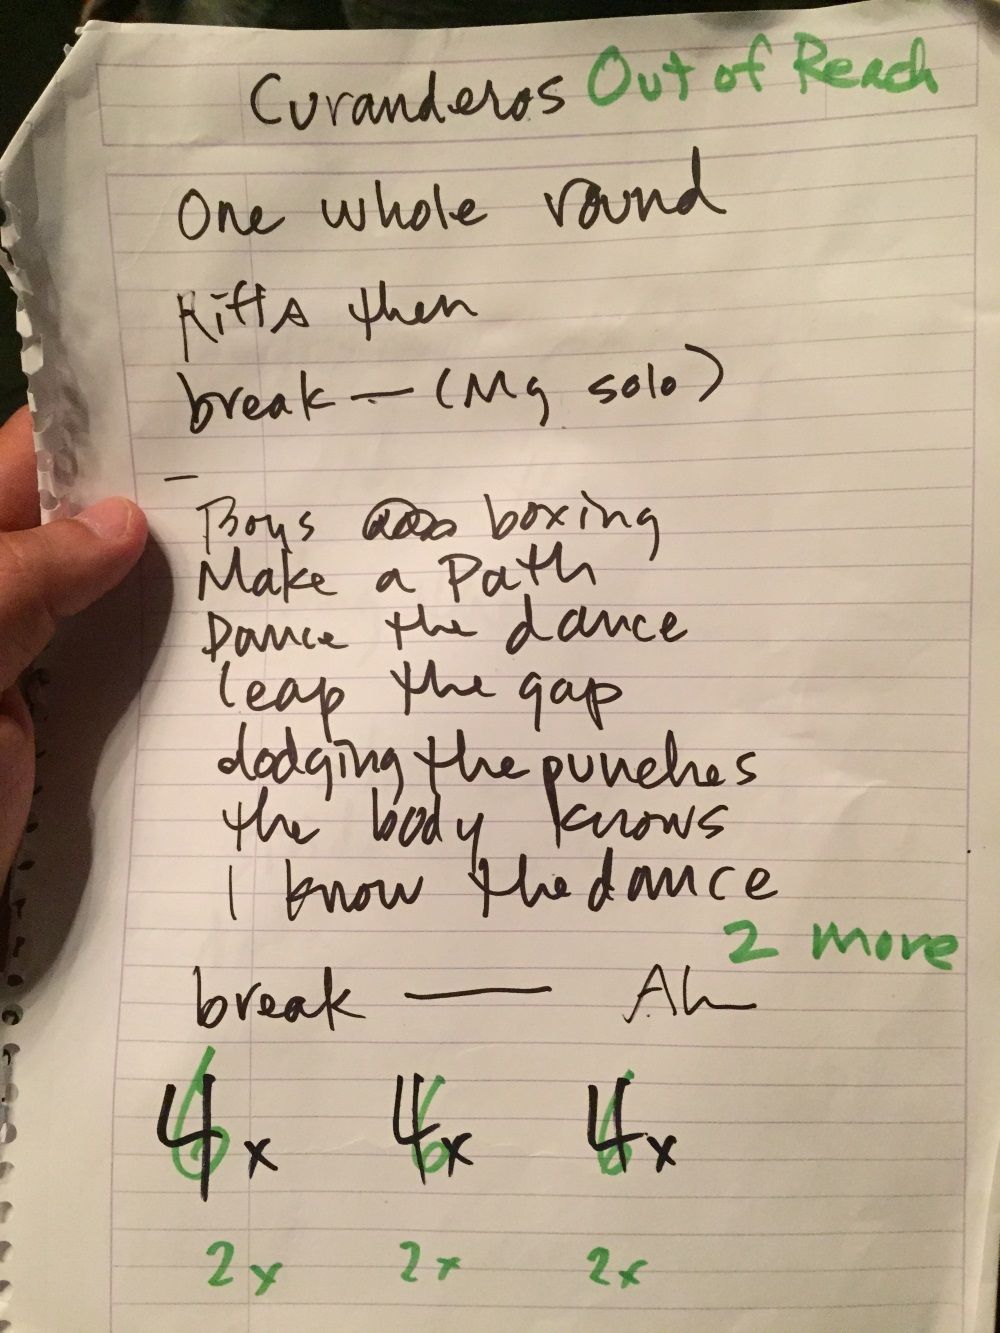 Curanderos Out of Reach
One whole round
Riffs then
break — (Mg solo)
—
Boys boxing
Make a Path
Dance the dance
leap the gap
dodging the punches
the body knows
I know the dance
2 more
break — Ah
4x 4x 4x
6 6 6
2x 2x 2x